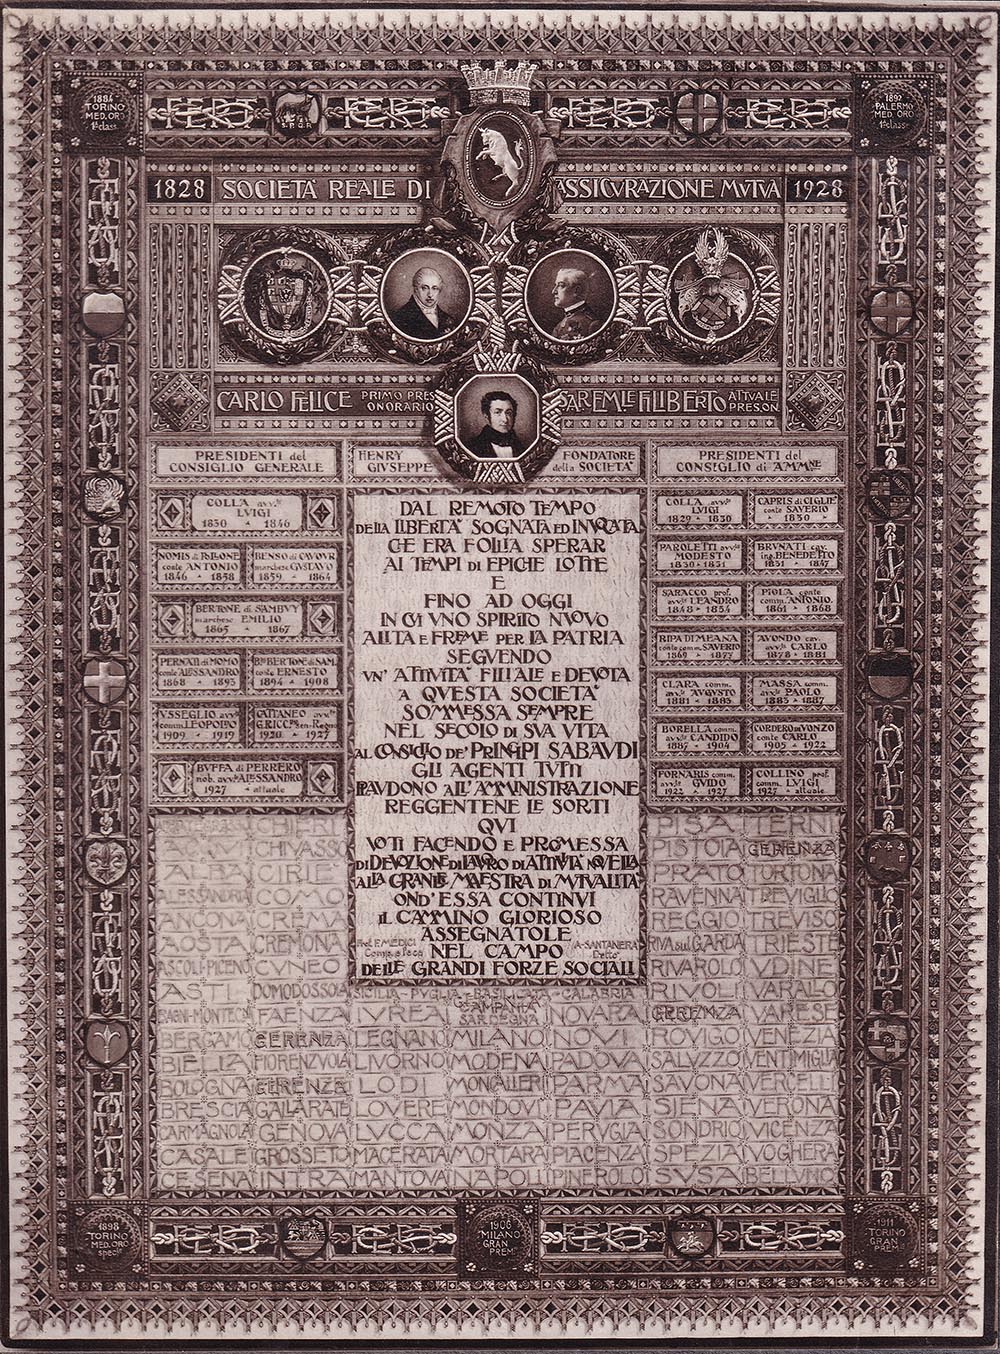 1884
TORINO
MED. ORO
1ª class
FERT FERT
S.P.Q.R.
FERT FERT
1892
PALERMO
MED. ORO
1ª class
1828 SOCIETÀ REALE DI ASSICVRAZIONE MVTVA 1928
CARLO FELICE PRIMO PRES ONORARIO
SAR EM.LE FILIBERTO ATTVALE PRES ON
PRESIDENTI del
CONSIGLIO GENERALE
HENRY
GIVSEPPE
FONDATORE
della SOCIETA'
PRESIDENTI del
CONSIGLIO di AMM.NE
COLLA avv.
LVIGI
1830 - 1846
NOMIS di POLLONE
conte ANTONIO
1846 - 1858
BENSO di CAVOVR
marchese GVSTAVO
1859 - 1864
BERTONE di SAMBVY
marchese EMILIO
1865 - 1867
PERNATI di MOMO
conte ALESSANDRO
1868 - 1893
BERTONE di SAM.
conte ERNESTO
1894 - 1908
VSSEGLIO avv.
comm. LEOPOLDO
1909 - 1919
CATTANEO avv.
1920 - 1927
BVFFA di PERRERO
nob. avv. ALESSANDRO
1927 - attuale
DAL REMOTO TEMPO
DELLA LIBERTA' SOGNATA ED INVOCATA
CHE ERA FOLLIA SPERAR
AI TEMPI DI EPICHE LOTTE
E
FINO AD OGGI
IN CVI VNO SPIRITO NVOVO
ALITA E FREME PER LA PATRIA
SEGVENDO
VN' ATTIVITA' FILIALE E DEVOTA
A QVESTA SOCIETA'
SOMMESSA SEMPRE
NEL SECOLO DI SVA VITA
AL CONSIGLIO DE' PRINCIPI SABAVDI
GLI AGENTI TVTTI
PLAVDONO ALL' AMMINISTRAZIONE
REGGENTENE LE SORTI
QVI
VOTI FACENDO E PROMESSA
DI DEVOZIONE DI LAVORO DI ATTIVITÀ NOVELLA
ALLA GRANDE MAESTRA DI MVTVALITA'
OND' ESSA CONTINVI
IL CAMMINO GLORIOSO
ASSEGNATOLE
NEL CAMPO
DELLE GRANDI FORZE SOCIALI
A. SANTANERA
COLLA avv.
LVIGI
1829 - 1830
CAPRIS di CIGLIE'
conte SAVERIO
1830
PAROLETTI avv.
MODESTO
1830 - 1831
BRVNATI cav.
ing. BENEDETTO
1831 - 1847
SARACCO prof.
avv. LEANDRO
1848 - 1854
PIOLA conte
comm. ANTONIO
1861 - 1868
RIPA DI MEANA
conte comm. SAVERIO
1869 - 1877
AVONDO cav.
avv. CARLO
1878 - 1881
CLARA comm.
avv. AVGVSTO
1881 - 1885
MASSA comm.
avv. PAOLO
1885 - 1887
BORELLA comm.
avv. CANDIDO
1887 - 1904
CORDERO di VONZO
conte CARLO
1905 - 1922
FORNARIS comm.
avv. GVIDO
1922 - 1927
COLLINO prof.
comm. LVIGI
1927 - attuale
CHIERI PISA TERNI
ACQVI CHIVASSO PISTOIA GERENZA
ALBA CIRIE' PRATO TORTONA
ALESSANDRIA COMO RAVENNA TREVIGLIO
ANCONA CREMA REGGIO TREVISO
AOSTA CREMONA RIVA sul GARDA TRIESTE
ASCOLI-PICENO CVNEO RIVAROLO VDINE
ASTI DOMODOSSOLA SICILIA - PVGLIA - BASILICATA - CALABRIA RIVOLI VARALLO
CAMPANIA
SARDEGNA
BAGNI-MONTECA FAENZA IVREA NOVARA GERENZA VARESE
BERGAMO GERENZA LEGNANO MILANO NOVI ROVIGO VENEZIA
BIELLA FIORENZVOLA LIVORNO MODENA PADOVA SALVZZO VENTIMIGLIA
BOLOGNA GERENZE LODI MONCALIERI PARMA SAVONA VERCELLI
BRESCIA GALLARATE LOVERE MONDOVI' PAVIA SIENA VERONA
CARMAGNOLA GENOVA LVCCA MONZA PERVGIA SONDRIO VICENZA
CASALE GROSSETO MACERATA MORTARA PIACENZA SPEZIA VOGHERA
CESENA INTRA MANTOVA NAPOLI PINEROLO SVSA BELLVNO
1898
TORINO
MED. ORO
specle
FERT
1906
MILANO
GRAN
PREM
FERT
1911
TORINO
GRAN
PREM